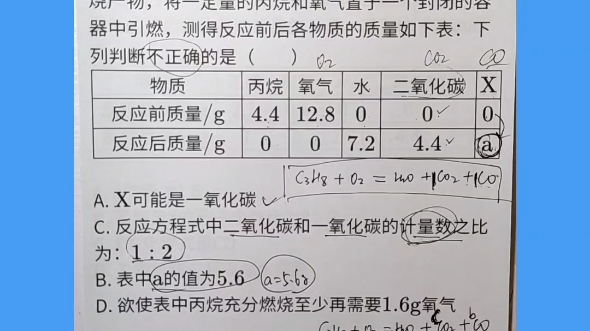 烧产物，将一定量的丙烷和氧气置于一个封闭的容
器中引燃，测得反应前后各物质的质量如下表：下
列判断不正确的是（ ）
O2 CO2 CO
物质 丙烷 氧气 水 二氧化碳 X
反应前质量/g 4.4 12.8 0 0 0
反应后质量/g 0 0 7.2 4.4 a
C3H8 + O2 = H2O + 1CO2 + 1CO
A. X可能是一氧化碳
C. 反应方程式中二氧化碳和一氧化碳的计量数之比
为：1：2
B. 表中a的值为5.6 a=5.6g
D. 欲使表中丙烷充分燃烧至少再需要1.6g氧气